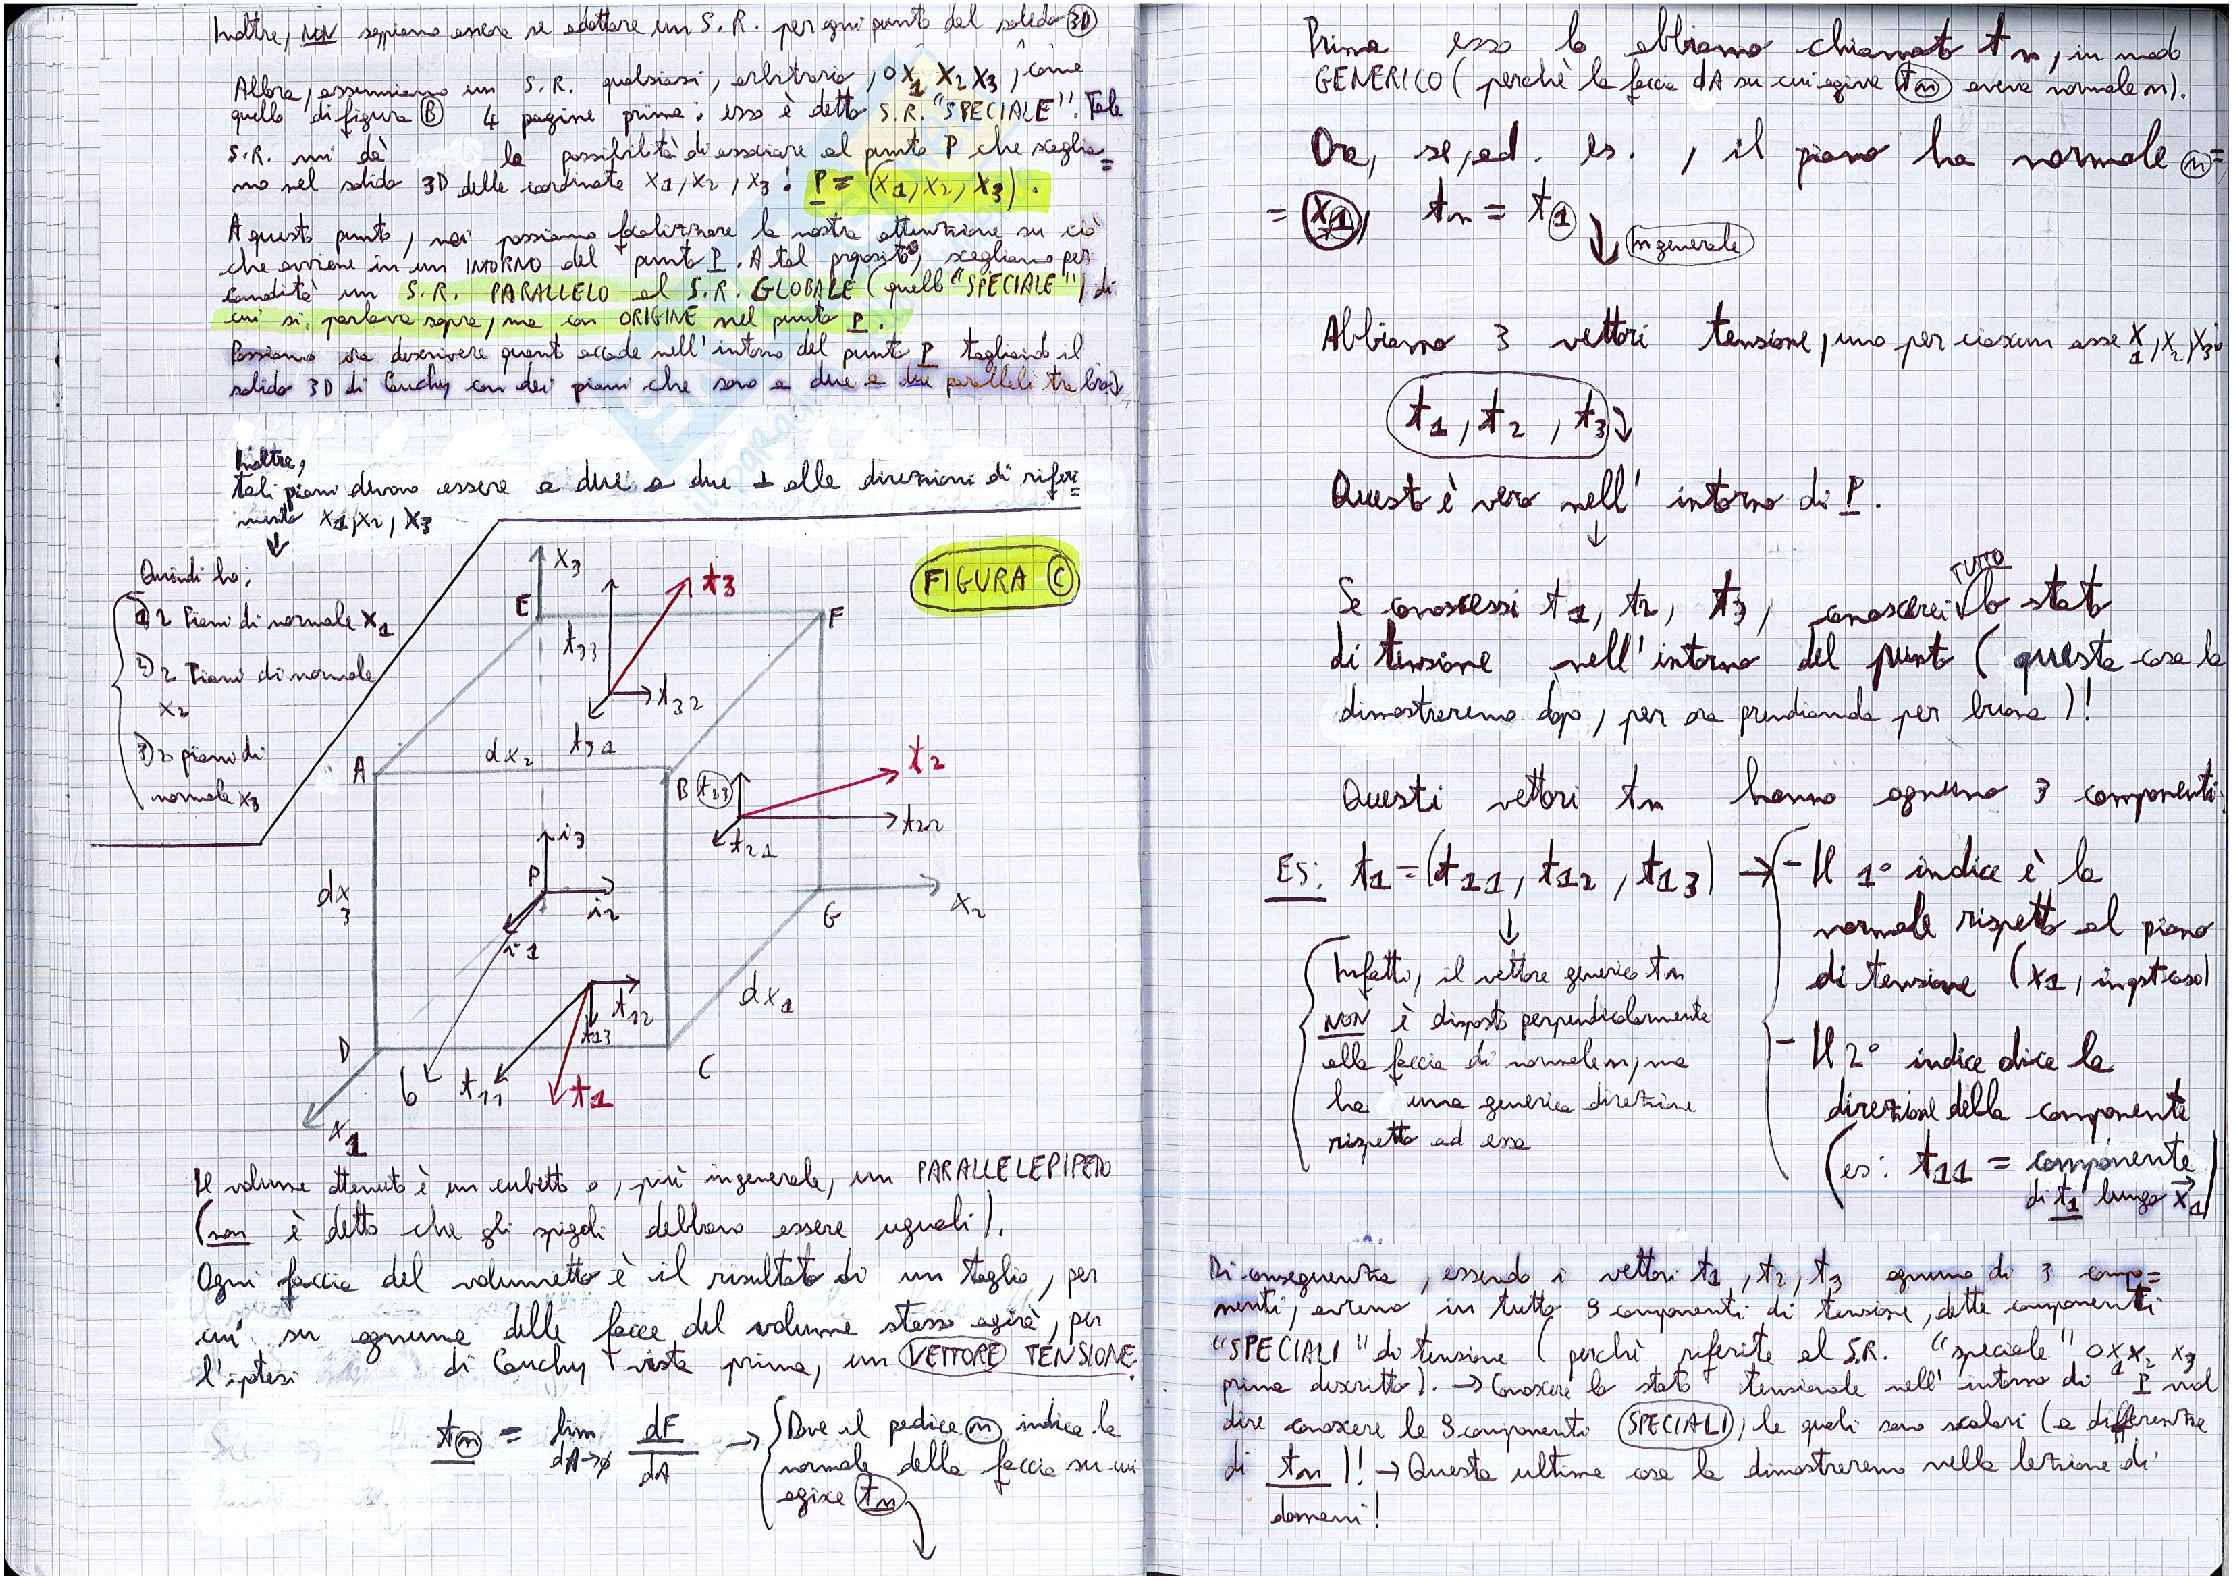 Inoltre, NON sappiamo ancora se adottare un S.R. per ogni punto del solido 3D
Allora, assumiamo un S.R. qualsiasi, arbitrario, O X1 X2 X3, come
quello di figura B 4 pagine prima: esso è detto S.R. "SPECIALE". Tale
S.R. mi dà la possibilità di associare al punto P che sceglia=
mo nel solido 3D delle coordinate X1, X2, X3: P = (X1, X2, X3).
A questo punto, noi possiamo focalizzare la nostra attenzione su ciò
che avviene in un INTORNO del punto P. A tal proposito, scegliamo per
comodità un S.R. PARALLELO al S.R. GLOBALE (quello "SPECIALE") di
cui si parlava sopra, ma con ORIGINE nel punto P.
Possiamo ora descrivere quanto accade nell'intorno del punto P tagliando il
solido 3D di Cauchy con dei piani che sono a due a due paralleli tra loro
Inoltre,
tali piani devono essere a due a due ⊥ alle direzioni di riferi=
mento X1, X2, X3
Quindi ho:
1) 2 Piani di normale X1
2) 2 Piani di normale
X2
3) 2 piani di
normale X3
FIGURA C
X3
E
F
t3
t33
t32
t31
A
dx2
B
t23
t2
t22
t21
dx3
i3
P
i2
i1
G
X2
dx1
t12
t13
D
C
b
t11
t1
X1
Il volume ottenuto è un cubetto o, più in generale, un PARALLELEPIPEDO
(non è detto che gli spigoli debbano essere uguali).
Ogni faccia del volumetto è il risultato di un taglio, per
cui su ognuna delle facce del volume stesso agirà, per
l'ipotesi di Cauchy vista prima, un VETTORE TENSIONE.
tn = lim dA→0 dF/dA → Dove il pedice n indica la
normale della faccia su cui
agisce tn
Prima esso lo abbiamo chiamato tn, in modo
GENERICO (perchè la faccia dA su cui agiva tn aveva normale n).
Ora, se, ad. es., il piano ha normale n=
= X1, tn = t1
In generale
Abbiamo 3 vettori tensione, uno per ciascun asse X1, X2, X3:
t1, t2, t3
Questo è vero nell'intorno di P.
Se conoscessi t1, t2, t3, conoscerei TUTTO lo stato
di tensione nell'intorno del punto (questa cosa la
dimostreremo dopo, per ora prendiamola per buona)!
Questi vettori tn hanno ognuno 3 componenti:
ES: t1 = (t11, t12, t13) → - Il 1° indice è la
normale rispetto al piano
di tensione (X1, in qst caso)
- Il 2° indice dice la
direzione della componente
(es: t11 = componente
di t1 lungo X1)
Infatti, il vettore generico tn
NON è disposto perpendicolarmente
alla faccia di normale n, ma
ha una generica direzione
rispetto ad essa
Di conseguenza, essendo i vettori t1, t2, t3 ognuno di 3 compo=
nenti, avremo in tutto 9 componenti di tensione, dette componenti
"SPECIALI" di tensione (perchè riferite al S.R. "speciale" O X1 X2 X3
prima descritto). → Conoscere lo stato tensionale nell'intorno di P vuol
dire conoscere le 9 componenti SPECIALI, le quali sono scalari (a differenza
di tn)! → Questa ultima cosa la dimostreremo nella lezione di
domani!